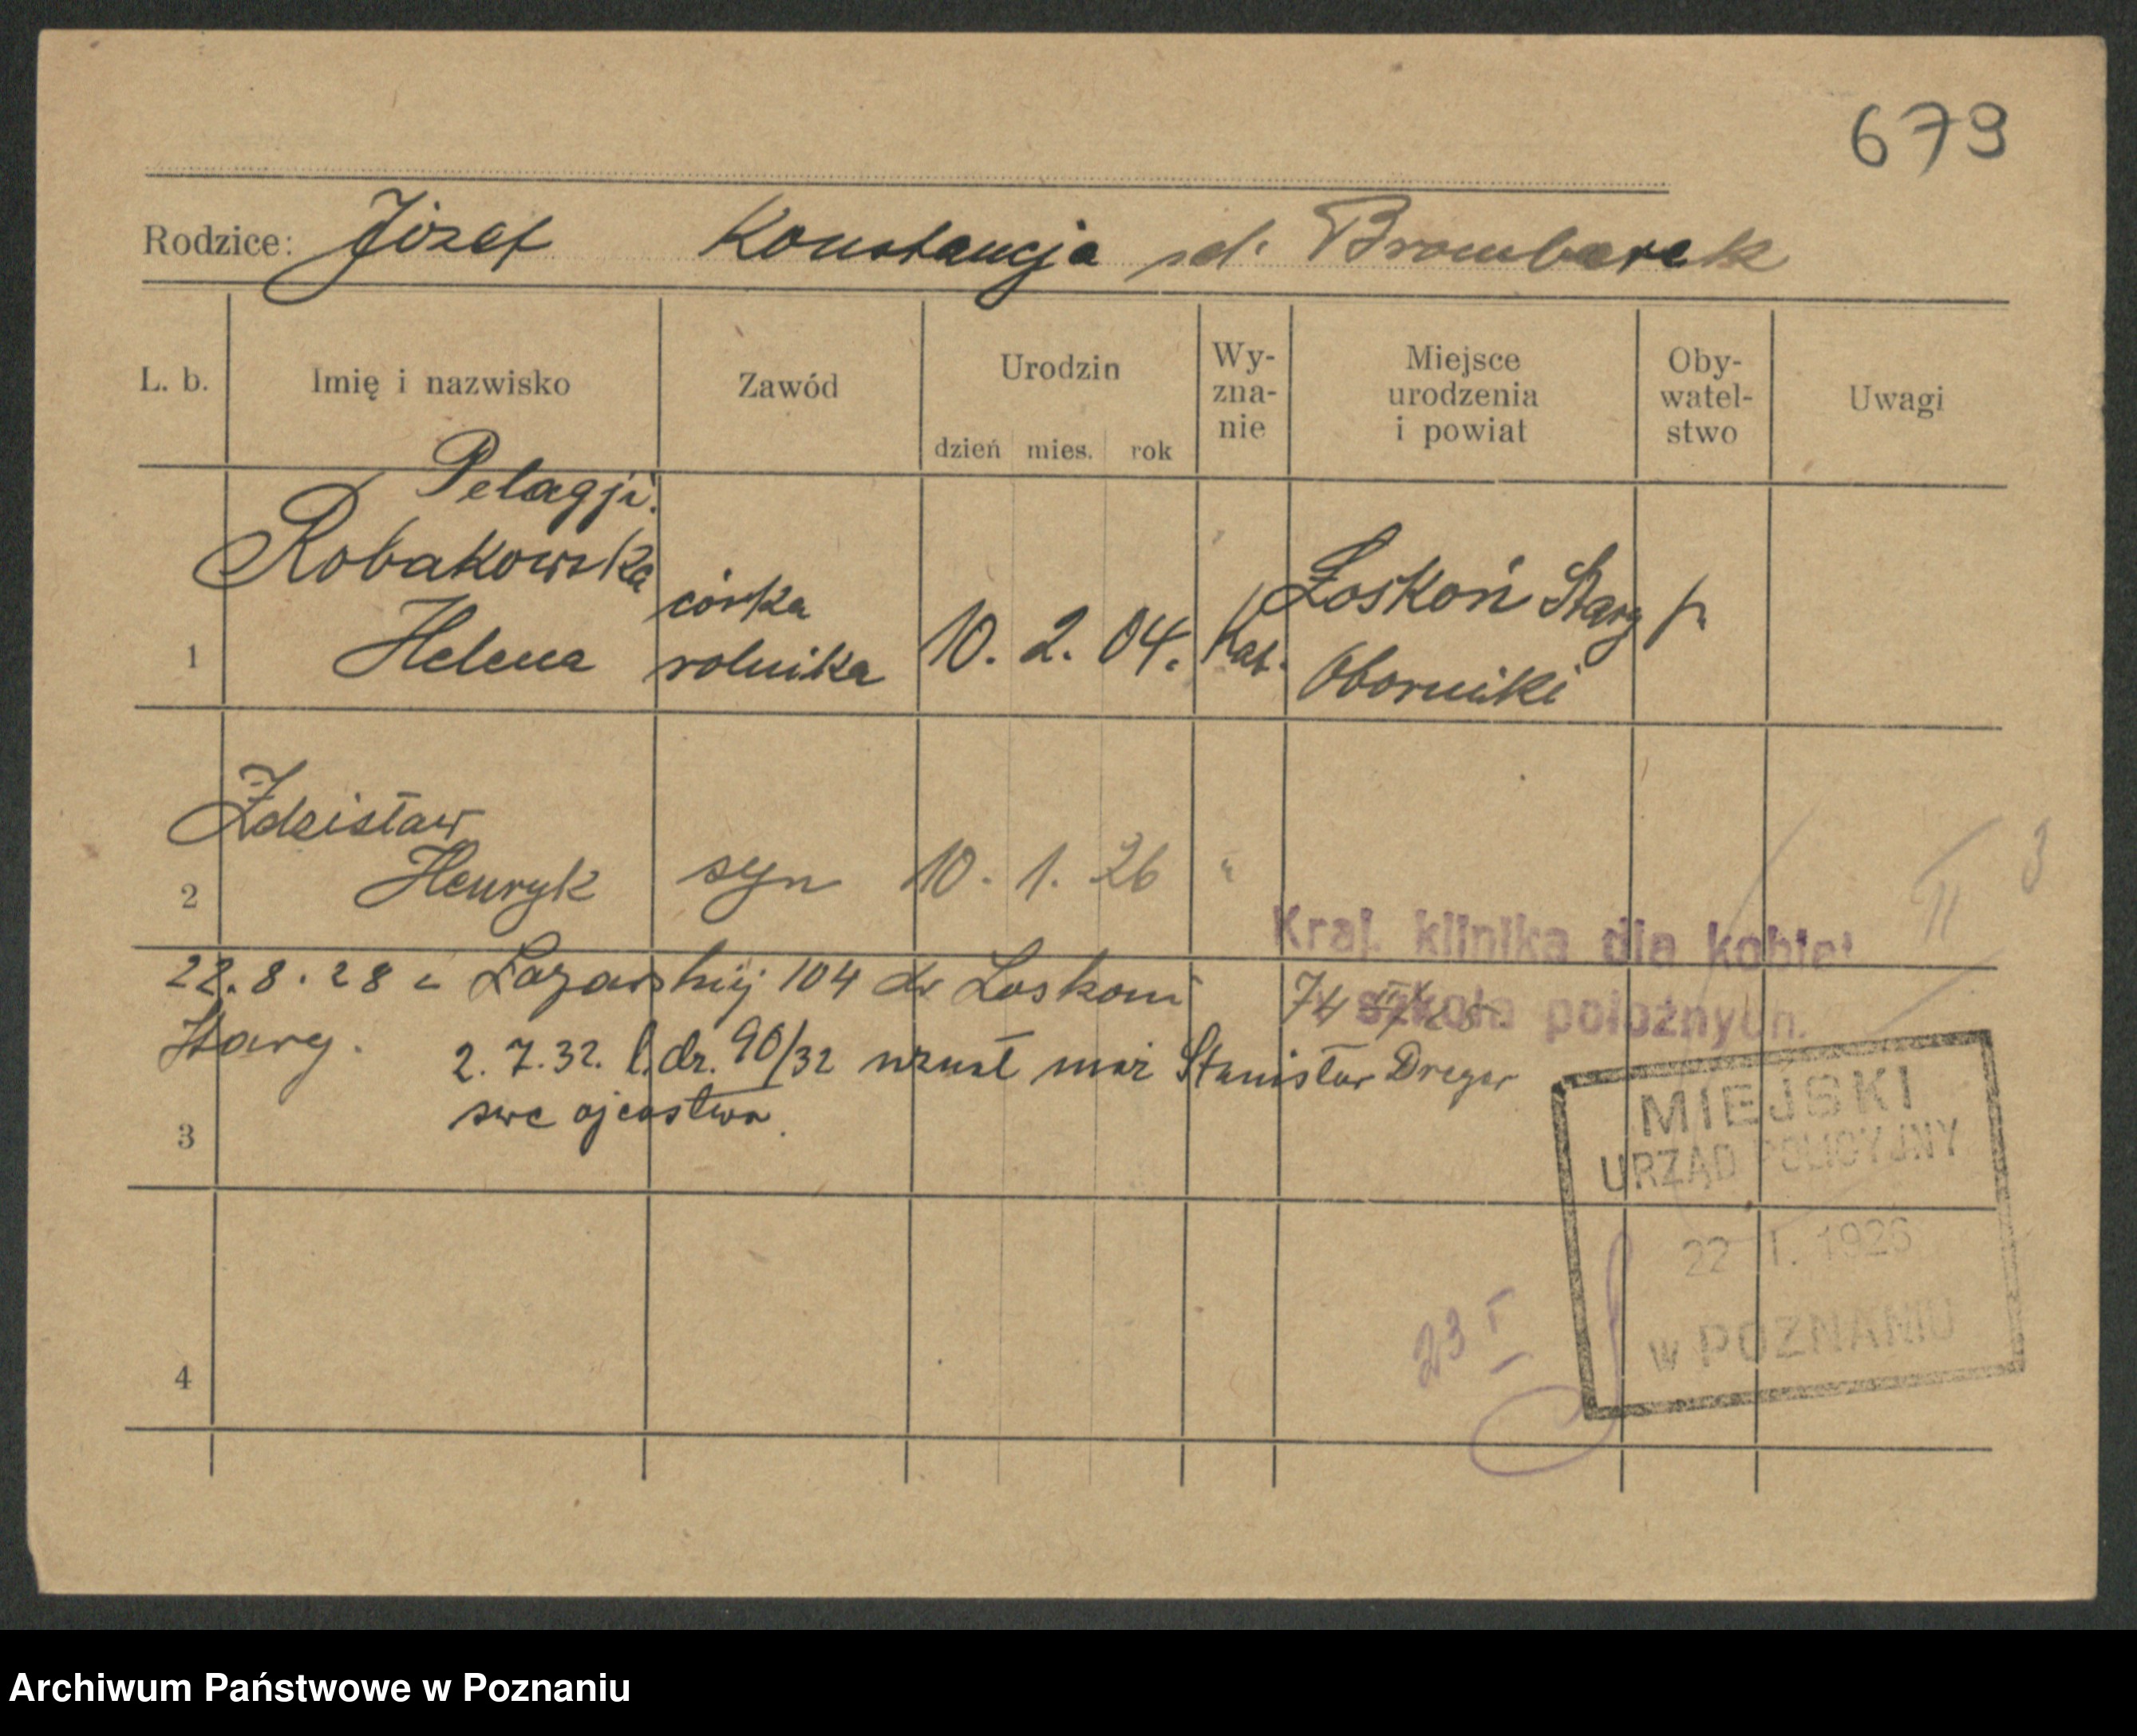 679
Rodzice: Józef Konstancja
L. b. Imię i nazwisko Zawód Urodzin dzień mies. rok Wy-zna-nie Miejsce urodzenia i powiat Oby-watel-stwo Uwagi
Pelagji
Robakowska córka Łoskoń Stary p.
1 Helena rolnika 10. 2. 04. Kat. Oborniki
Zdzisław
2 Henryk syn 10. 1. 26 "
II 3
Kraj. klinika dla kobiet
szkoła położnych.
22.8.28 z 104 do Łoskoni 74
Stary.
2.7.32. l.dz. 90/32 uznał mąż Stanisław Dreger
swe ojcostwo.
3
MIEJSKI
URZĄD POLICYJNY
22 I. 1926
w POZNANIU
23 I
4
Archiwum Państwowe w Poznaniu